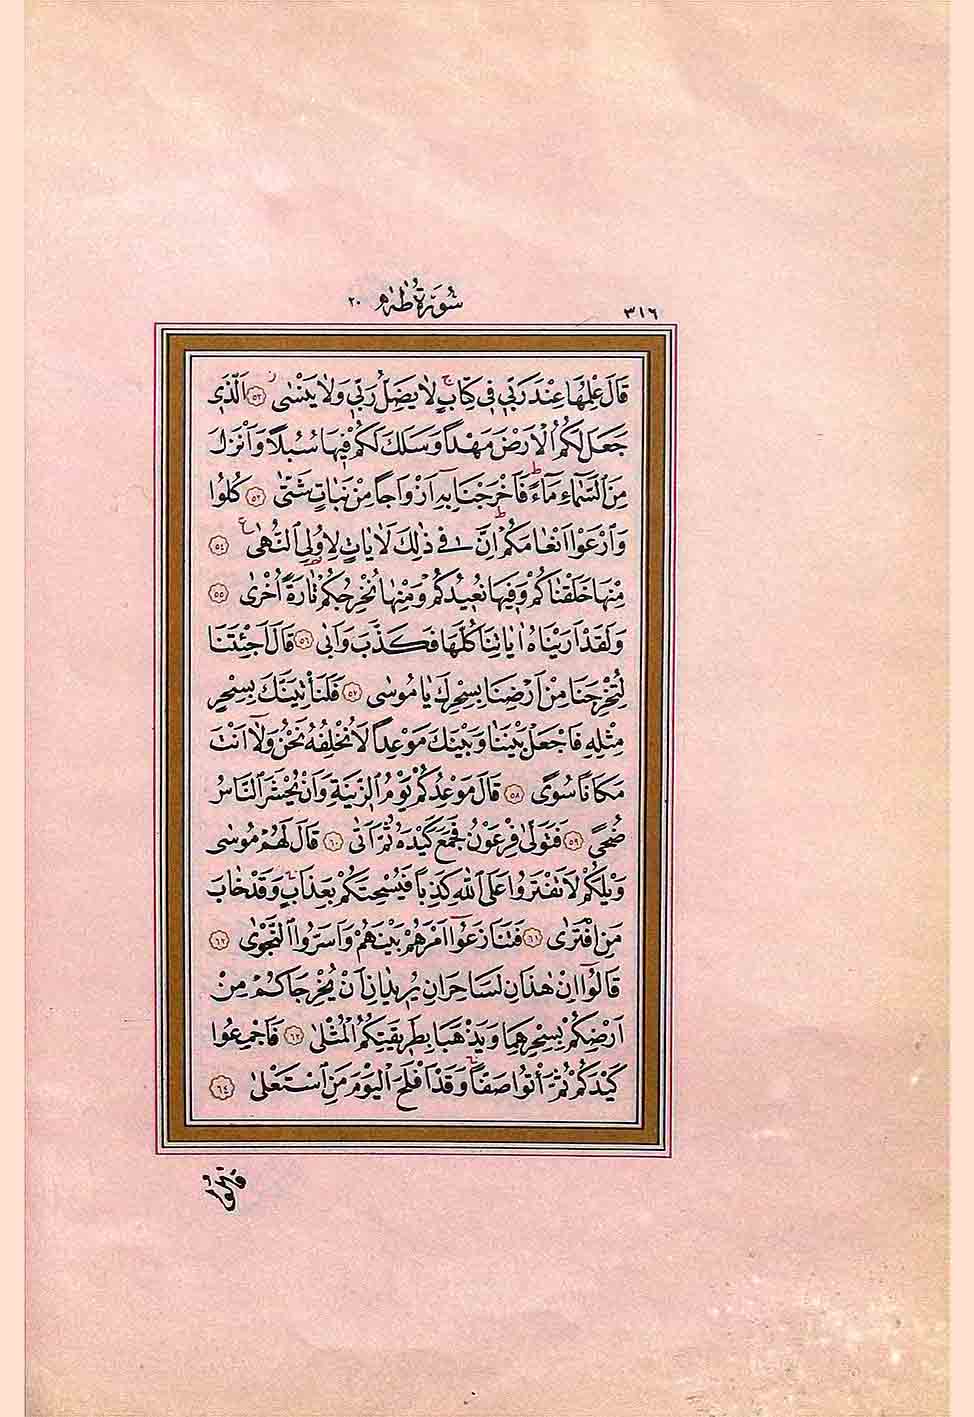 ٣١٦
سُورَةُ طٰهٰ ٢٠
قَالَ عِلْمُهَا عِنْدَ رَبّ۪ي ف۪ي كِتَابٍۚ لَا يَضِلُّ رَبّ۪ي وَلَا يَنْسٰىۘ ﴿٥٢﴾ اَلَّذ۪ي
جَعَلَ لَكُمُ الْاَرْضَ مَهْداً وَسَلَكَ لَكُمْ ف۪يهَا سُبُلاً وَاَنْزَلَ
مِنَ السَّمَٓاءِ مَٓاءًۜ فَاَخْرَجْنَا بِه۪ٓ اَزْوَاجاً مِنْ نَبَاتٍ شَتّٰى ﴿٥٣﴾ كُلُوا
وَارْعَوْا اَنْعَامَكُمْۜ اِنَّ ف۪ي ذٰلِكَ لَاٰيَاتٍ لِاُو۬لِي النُّهٰى۟ ﴿٥٤﴾
مِنْهَا خَلَقْنَاكُمْ وَف۪يهَا نُع۪يدُكُمْ وَمِنْهَا نُخْرِجُكُمْ تَارَةً اُخْرٰى ﴿٥٥﴾
وَلَقَدْ اَرَيْنَاهُ اٰيَاتِنَا كُلَّهَا فَكَذَّبَ وَاَبٰى ﴿٥٦﴾ قَالَ اَجِئْتَنَا
لِتُخْرِجَنَا مِنْ اَرْضِنَا بِسِحْرِكَ يَا مُوسٰى ﴿٥٧﴾ فَلَنَأْتِيَنَّكَ بِسِحْرٍ
مِثْلِه۪ فَاجْعَلْ بَيْنَنَا وَبَيْنَكَ مَوْعِداً لَا نُخْلِفُهُ نَحْنُ وَلَٓا اَنْتَ
مَكَاناً سُوًى ﴿٥٨﴾ قَالَ مَوْعِدُكُمْ يَوْمُ الزّ۪ينَةِ وَاَنْ يُحْشَرَ النَّاسُ
ضُحًى ﴿٥٩﴾ فَتَوَلّٰى فِرْعَوْنُ فَجَمَعَ كَيْدَهُ ثُمَّ اَتٰى ﴿٦٠﴾ قَالَ لَهُمْ مُوسٰى
وَيْلَكُمْ لَا تَفْتَرُوا عَلَى اللّٰهِ كَذِباً فَيُسْحِتَكُمْ بِعَذَابٍۚ وَقَدْ خَابَ
مَنِ افْتَرٰى ﴿٦١﴾ فَتَنَازَعُٓوا اَمْرَهُمْ بَيْنَهُمْ وَاَسَرُّوا النَّجْوٰى ﴿٦٢﴾
قَالُٓوا اِنْ هٰذَانِ لَسَاحِرَانِ يُر۪يدَانِ اَنْ يُخْرِجَاكُمْ مِنْ
اَرْضِكُمْ بِسِحْرِهِمَا وَيَذْهَبَا بِطَر۪يقَتِكُمُ الْمُثْلٰى ﴿٦٣﴾ فَاَجْمِعُوا
كَيْدَكُمْ ثُمَّ ائْتُوا صَفاًّۚ وَقَدْ اَفْلَحَ الْيَوْمَ مَنِ اسْتَعْلٰى ﴿٦٤﴾
قَالُوا